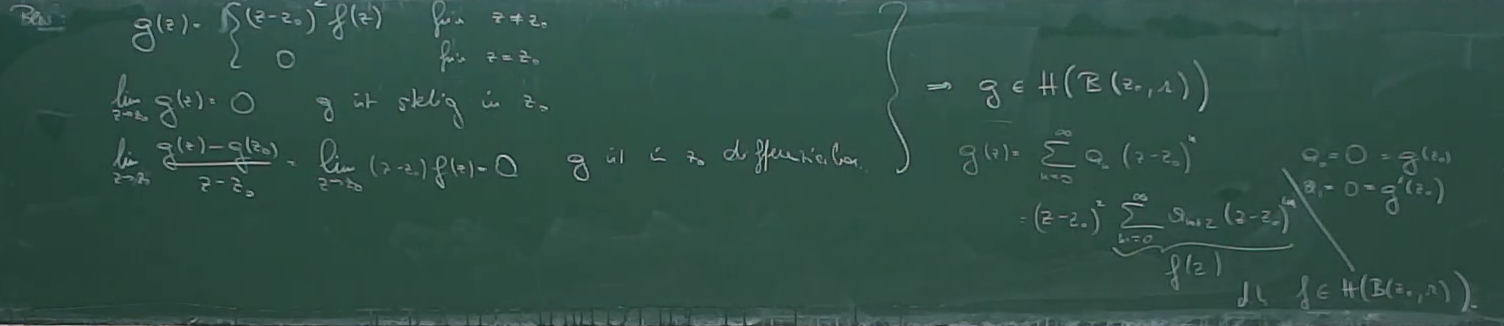 Bew
g(z) = { (z-z₀)² f(z) für z ≠ z₀
0 für z = z₀
lim_{z→z₀} g(z) = 0 g ist stetig in z₀
lim_{z→z₀} (g(z) - g(z₀))/(z - z₀) = lim_{z→z₀} (z-z₀) f(z) = 0 g ist in z₀ differenzierbar. }
⇒ g ∈ H(B(z₀, r))
g(z) = ∑_{n=0}^{∞} aₙ (z-z₀)ⁿ a₀ = 0 = g(z₀)
a₁ = 0 = g'(z₀)
= (z-z₀)² ∑_{n=0}^{∞} aₙ₊₂ (z-z₀)ⁿ
f(z)
d.h. f ∈ H(B(z₀, r)).